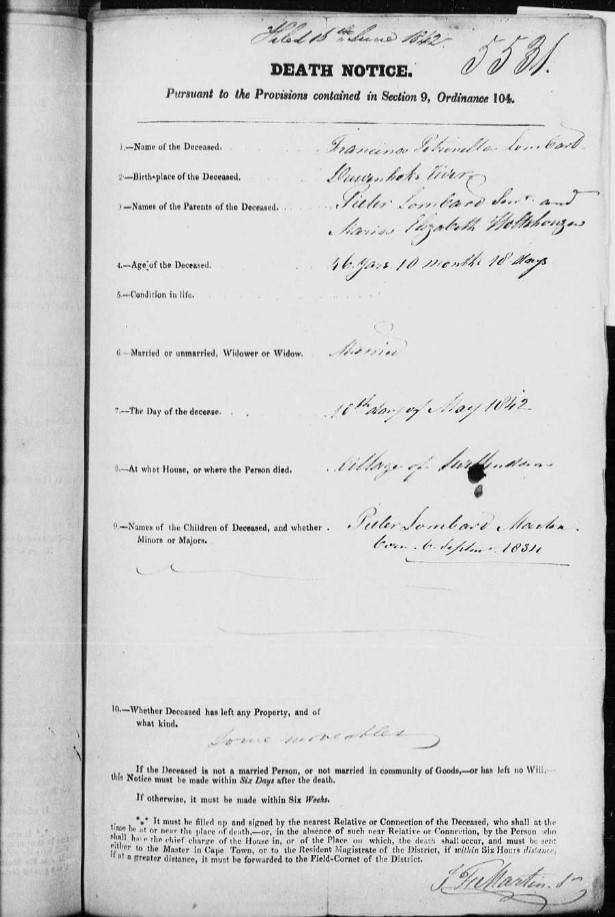 Filed 15th June 1842.
5531.
DEATH NOTICE.
Pursuant to the Provisions contained in Section 9, Ordinance 104.
1.—Name of the Deceased. Francina Petronella Lombard
2.—Birth-place of the Deceased. River
3.—Names of the Parents of the Deceased. Pieter Lombard Senr. and
Maria Elizabeth Holtshouzen
4.—Age of the Deceased. 46 years 10 months 18 days
5.—Condition in life.
6.—Married or unmarried, Widower or Widow. Married
7.—The Day of the decease. 10th day of May 1842
8.—At what House, or where the Person died. Village of Swellendam
9.—Names of the Children of Deceased, and whether Pieter Lombard Martin
Minors or Majors. born 6 Septemr. 1834
10.—Whether Deceased has left any Property, and of
what kind. some moveables
If the Deceased is not a married Person, or not married in community of Goods,—or has left no Will,—
this Notice must be made within Six Days after the death.
If otherwise, it must be made within Six Weeks.
*** It must be filled up and signed by the nearest Relative or Connection of the Deceased, who shall at the
time be at or near the place of death,—or, in the absence of such near Relative or Connection, by the Person who
shall have the chief charge of the House in, or of the Place on which, the death shall occur, and must be sent
either to the Master in Cape Town, or to the Resident Magistrate of the District, if within Six Hours distance,
if at a greater distance, it must be forwarded to the Field-Cornet of the District.
Martin